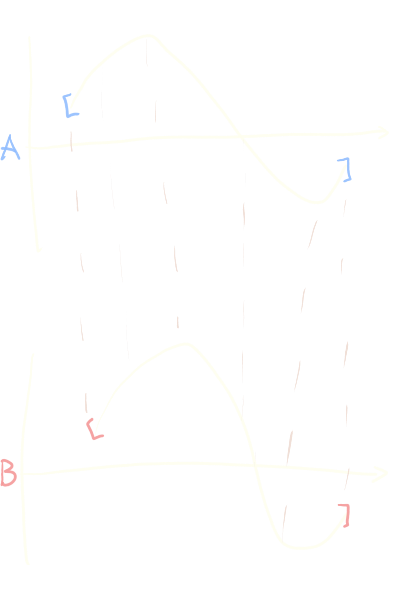 [
A
]
[
B
]